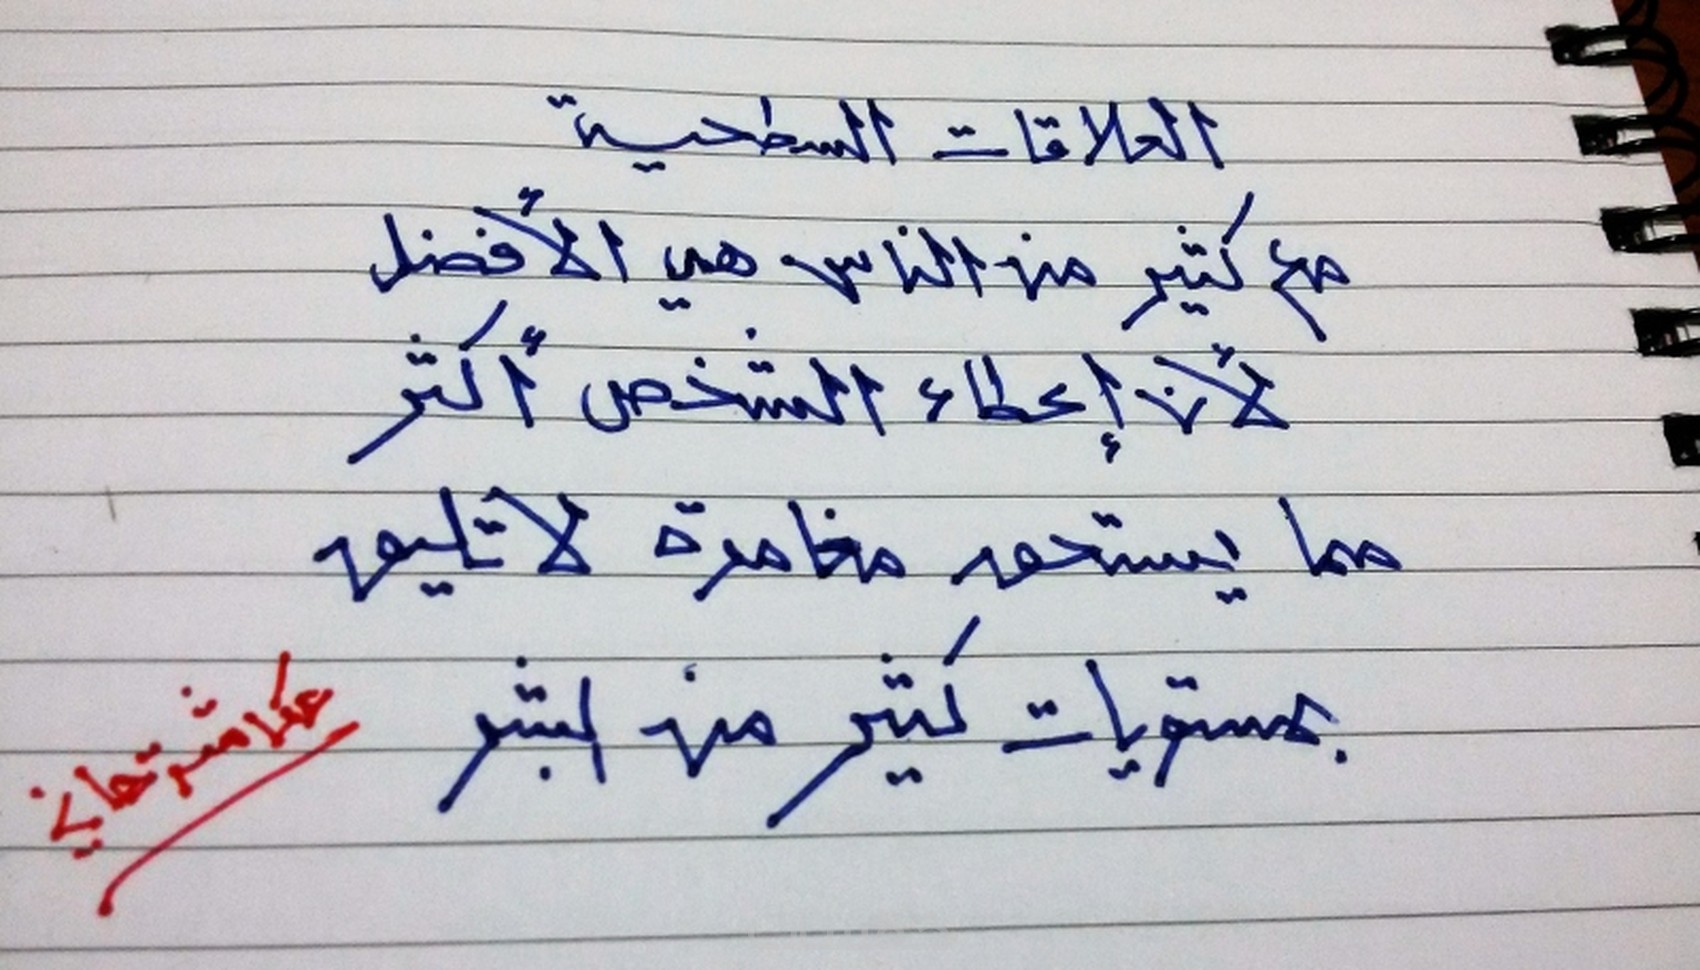 العلاقات السطحية
مع كثير من الناس هي الأفضل
لأن إعطاء الشخص أكثر
مما يستحق مغامرة لا تليق
بمستويات كثير من البشر